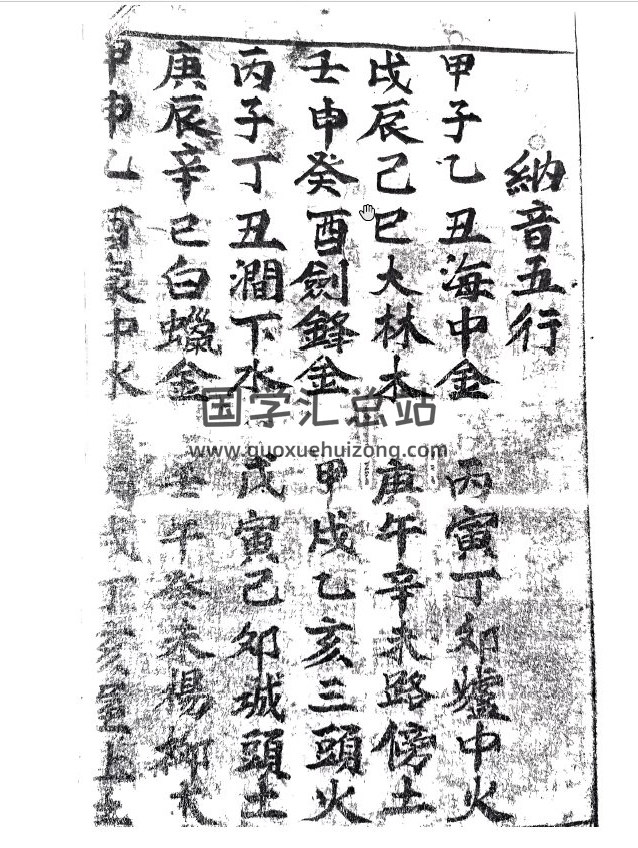 納音五行
甲子乙丑海中金 丙寅丁卯爐中火
戊辰己巳大林木 庚午辛未路傍土
壬申癸酉劍鋒金 甲戌乙亥三頭火
丙子丁丑澗下水 戊寅己卯城頭土
庚辰辛巳白蠟金 壬午癸未楊柳木
甲申乙酉泉中水 戌丁亥屋上土
国学汇总站
www.guoxuehuizong.com